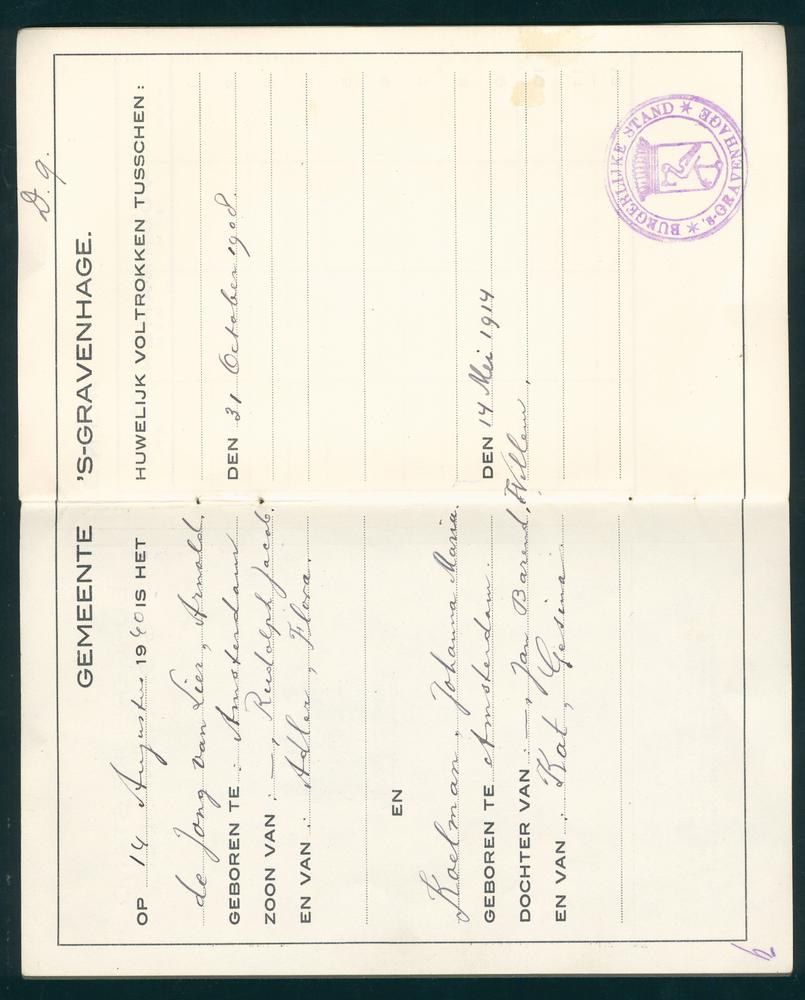 D. 9.
GEMEENTE 'S-GRAVENHAGE.
OP 14 Augustus 1940 IS HET HUWELIJK VOLTROKKEN TUSSCHEN:
de Jong van Lier, Arnold.
GEBOREN TE : Amsterdam DEN 31 October 1908.
ZOON VAN : —, Rudolph Jacob.
EN VAN : Adler, Flora.
EN
Koelman, Johanna Maria.
GEBOREN TE Amsterdam. DEN 14 Mei 1914
DOCHTER VAN : —, Jan Barend, Willem,
EN VAN : Kat, Gesina.
BURGERLIJKE STAND * 's-GRAVENHAGE *